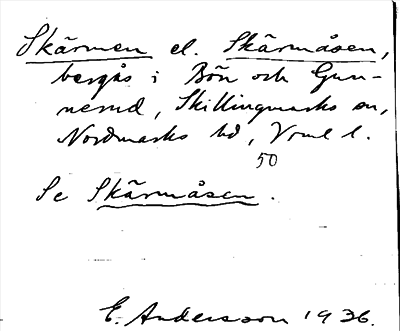 Skärmen el. Skärmåsen,
bergås i Bön och Gun-
nerud, Skillingmarks sn,
Nordmarks hd, Vrml l.
50
Se Skärmåsen.
E. Andersson 1936.